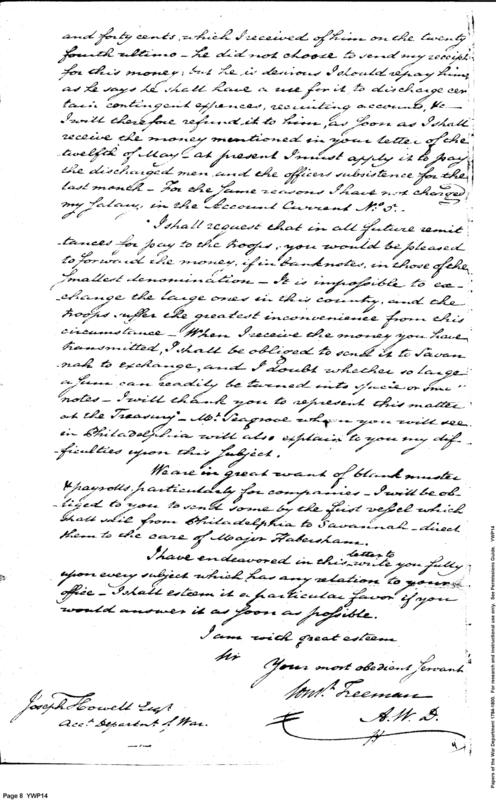 and forty cents, which I received of him on the twenty
fourth ultimo - he did not choose to send my receipt
for this money; but he is desirous I should repay him,
as he says he shall have a use for it to discharge cer
tain contingent expences, recruiting accounts, &c -
I will therefore refund it to him, as soon as I shall
receive the money mentioned in your letter of the
twelfth of May - at present I must apply it to pay
the discharged men and the officers subsistence for the
last month - For the same reasons I have not charged
my Salary, in the Account Current No. 5 -
I shall request that in all future remit
tances for pay to the troops, you would be pleased
to forward the money, if in banknotes, in those of the
smallest denomination - It is impossible to ex-
change the large ones in this country, and the
troops suffer the greatest inconvenience from this
circumstance - When I receive the money you have
transmitted, I shall be obliged to send it to Savan
nah to exchange, and I doubt whether so large
a sum can readily be turned into specie or
notes - I will thank you to represent this matter
at the Treasury - Mr. Seagrove whom you will see
in Philadelphia will also explain to you my dif-
ficulties upon this subject.
We are in great want of blank muster
& payrolls, particularly for companies - I will be ob-
liged to you to send some by the first vessel which
shall sail from Philadelphia to Savannah - direct
them to the care of Major Habersham.
I have endeavored in this letter to write you fully
upon every subject which has any relation to your
office - I shall esteem it a particular favor if you
would answer it as soon as possible.
I am with great esteem
Sir
Your most obedient Servant
Const. Freeman
A.W.D.
Joseph Howell Esqr.
Acct. Department of War.
Page 8 YWP14
Papers of the War Department 1784-1800. For research and instructional use only. See Permissions Guide. YWP14